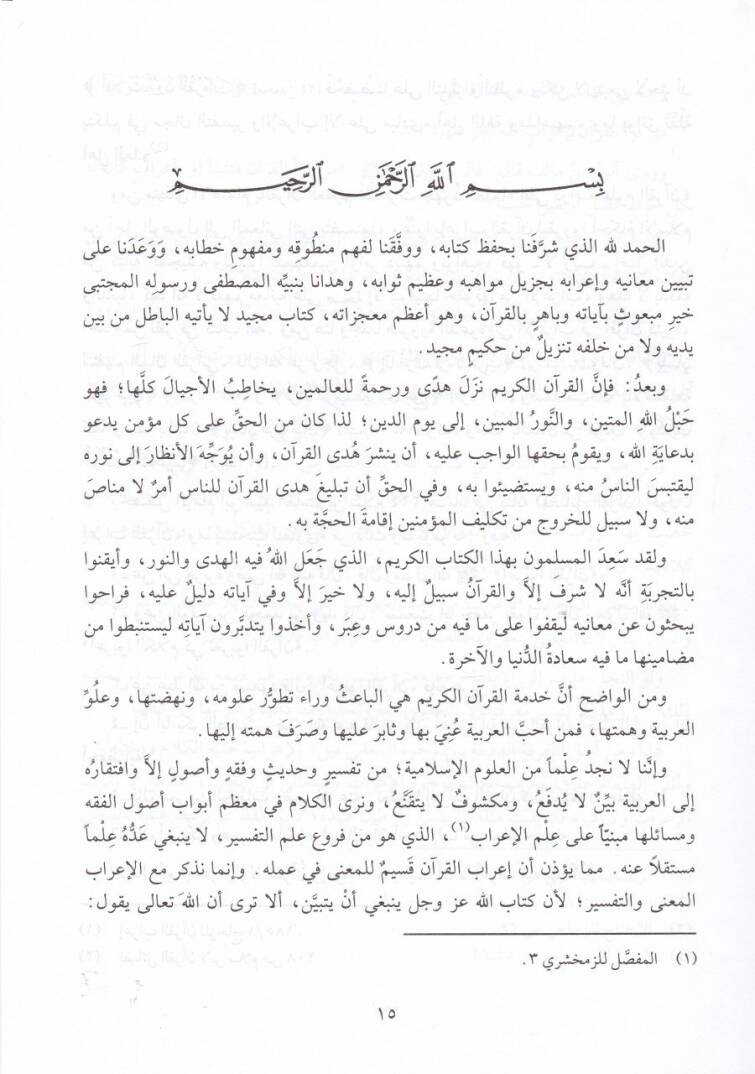 بِسْمِ اللَّهِ الرَّحْمَٰنِ الرَّحِيمِ
الحمد لله الذي شرَّفنا بحفظ كتابه، ووفَّقَنا لفهم منطُوقِه ومفهومِ خطابه، وَوَعَدَنا على
تبيين معانيه وإعرابه بجزيل مواهبه وعظيم ثوابه، وهدانا بنبيِّه المصطفى ورسوله المجتبى
خيرِ مبعوثٍ بآياته وباهرِ بالقرآن، وهو أعظم معجزاته، كتاب مجيد لا يأتيه الباطل من بين
يديه ولا من خلفه تنزيلٌ من حكيمٍ مجيد.
وبعدُ: فإنَّ القرآن الكريم نزَلَ هدًى ورحمةً للعالمين، يخاطِبُ الأجيالَ كلَّها؛ فهو
حَبْلُ اللهِ المتين، والنَّورُ المبين، إلى يوم الدين؛ لذا كان من الحقِّ على كل مؤمن يدعو
بدعايَةِ الله، ويقومُ بحقها الواجب عليه، أن ينشرَ هُدى القرآن، وأن يُوَجِّهَ الأنظارَ إلى نوره
ليقتبسَ الناسُ منه، ويستضيئوا به، وفي الحقِّ أن تبليغَ هدى القرآن للناس أمرٌ لا مناصَ
منه، ولا سبيل للخروج من تكليف المؤمنين إقامةَ الحجَّة به.
ولقد سَعِدَ المسلمون بهذا الكتاب الكريم، الذي جَعَل اللهُ فيه الهدى والنور، وأيقنوا
بالتجربَةِ أنَّه لا شرفَ إلاَّ والقرآنُ سبيلٌ إليه، ولا خيرَ إلاَّ وفي آياته دليلٌ عليه، فراحوا
يبحثون عن معانيه ليقفوا على ما فيه من دروس وعِبَر، وأخذوا يتدبَّرون آياتِه ليستنبطوا من
مضامينها ما فيه سعادةُ الدُّنيا والآخرة.
ومن الواضح أنَّ خدمة القرآن الكريم هي الباعثُ وراء تطوُّر علومه، ونهضتها، وعلُوِّ
العربية وهمتها، فمن أحبَّ العربية عُنِيَ بها وثابرَ عليها وصَرَفَ همته إليها.
وإنَّنا لا نجدُ عِلْماً من العلوم الإسلامية؛ من تفسيرٍ وحديثٍ وفقهٍ وأصولٍ إلاَّ وافتقارُه
إلى العربية بيِّنٌ لا يُدفَعُ، ومكشوفٌ لا يتقنَّعُ، ونرى الكلام في معظم أبواب أصول الفقه
ومسائلها مبنيّاً على عِلْم الإعراب(١)، الذي هو من فروع علم التفسير، لا ينبغي عَدُّهُ عِلْماً
مستقلاً عنه. مما يؤذن أن إعراب القرآن قَسِيمٌ للمعنى في عمله. وإنما نذكر مع الإعراب
المعنى والتفسير؛ لأن كتاب الله عز وجل ينبغي أنْ يتبيَّن، ألا ترى أن اللهَ تعالى يقول:
(١) المفصَّل للزمخشري ٣.
١٥